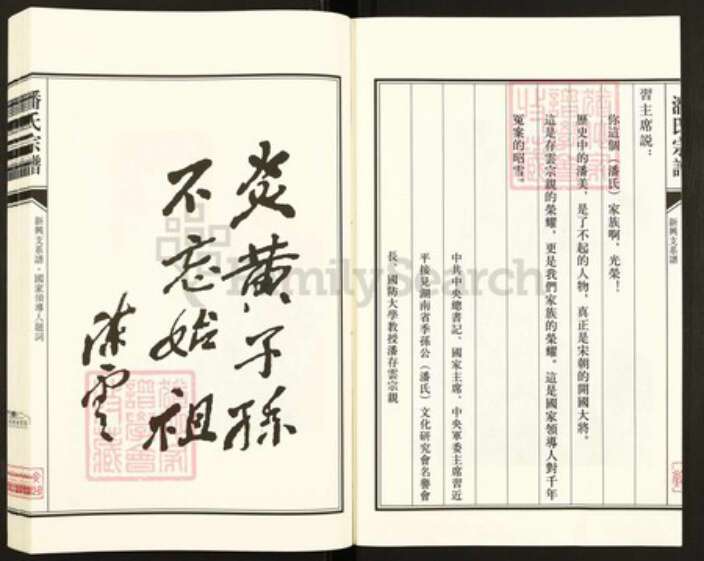 習主席說：
你這個（潘氏）家族啊，光榮！
歷史中的潘美，是了不起的人物，真正是宋朝的開國大將。
這是存雲宗親的榮耀，更是我們家族的榮耀。這是國家領導人對千年
冤案的昭雪。
中共中央總書記、國家主席、中央軍委主席習近
平接見湖南省季孫公（潘氏）文化研究會名譽會
長、國防大學教授潘存雲宗親
潘氏宗譜
新興支系譜
炎黃子孫
不忘始祖
陳雲
潘氏宗譜
新興支系譜·國家領導人題詞
FamilySearch